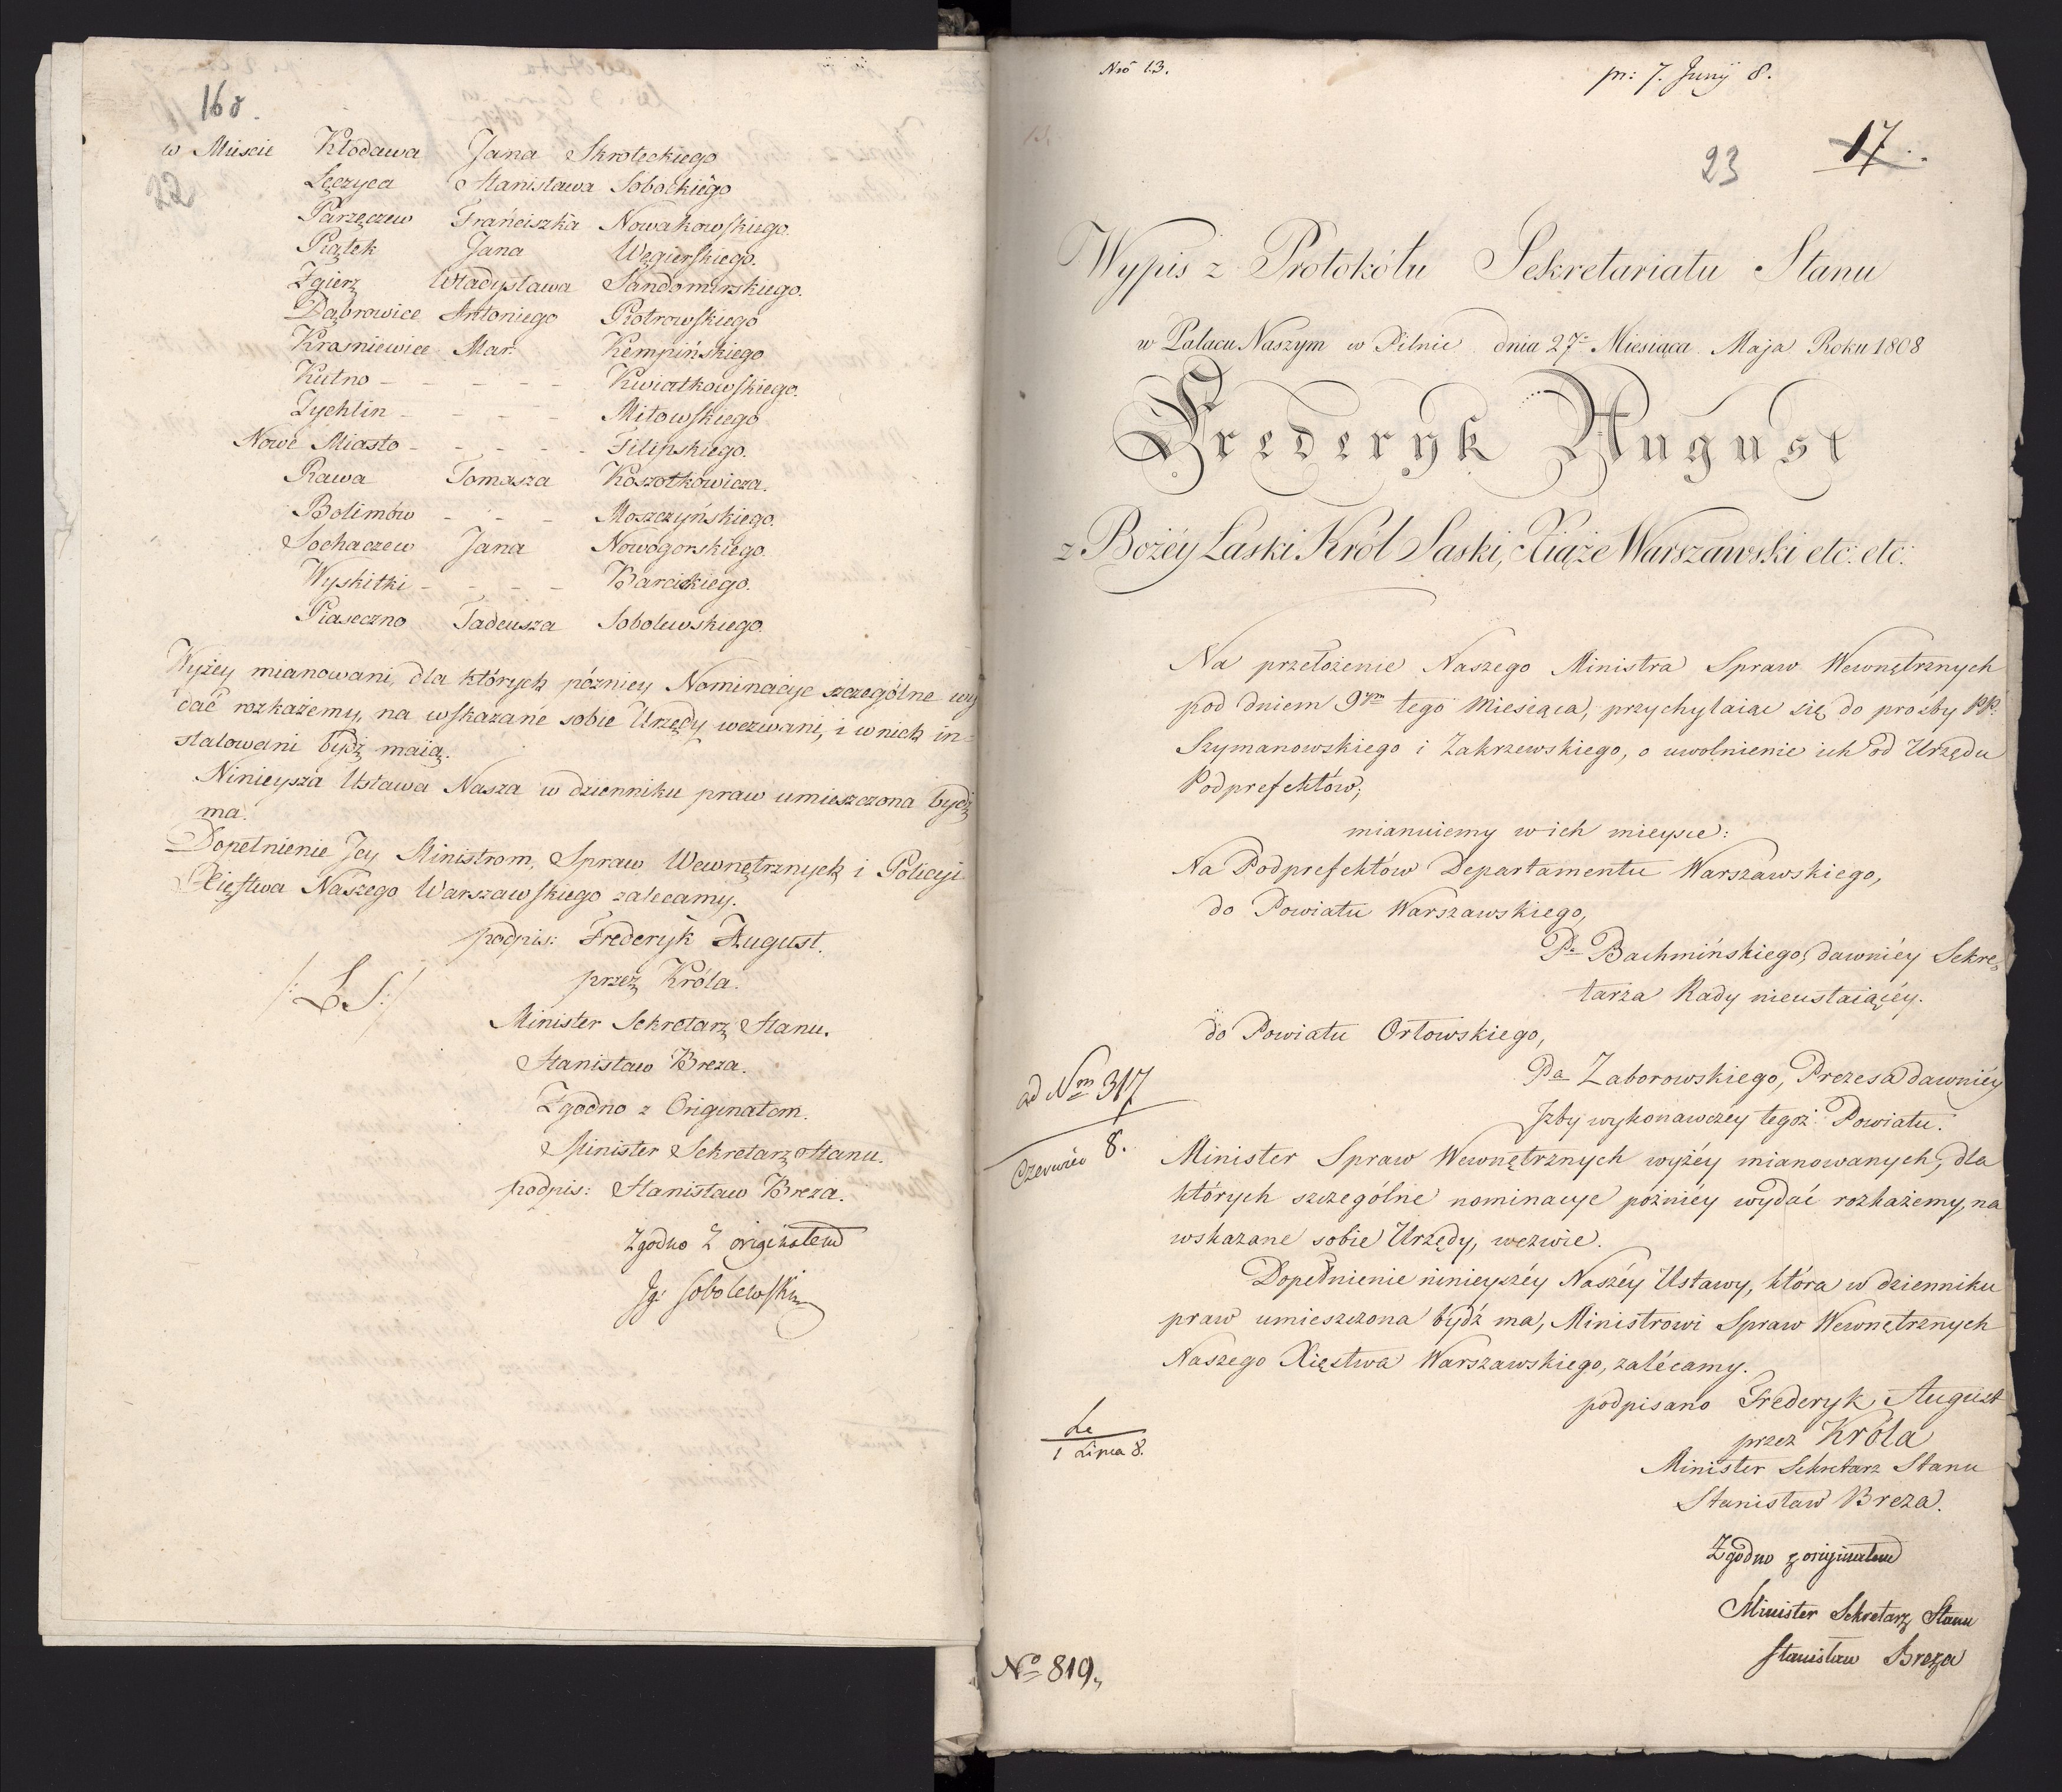 168.
22
w Miescie Kłodawa Jana Skrotęckiego
Łęczyca Stanisława Sobockiego
Parzęczew Franciszka Nowakowskiego.
Piątek Jana Węgierskiego.
Zgierz Władysława Sandomirskiego.
Dąbrowice Antoniego Piotrowskiego
Krasniewice Mar. Kempińskiego
Kutno - - - - - Kwiatkowskiego.
Żychlin - - - - Miłowskiego
Nowe Miasto - - - - - Filipskiego.
Rawa Tomasza Koszotkowicza.
Bolimów - - - Moszczyńskiego.
Sochaczew Jana Nowogorskiego.
Wyskitki - - - - Barcickiego.
Piaseczno Tadeusza Sobolewskiego.
Wyżey mianowani, dla których pózniey Nominacye szczególne wy
dać rozkażemy, na wskazane sobie Urzędy wezwani, i w nich in=
stalowani bydź maią.
Ninieysza Ustawa Nasza w dzienniku praw umieszczona bydź
ma.
Dopełnienie Jey Ministrom, Spraw Wewnętrznych i Policyi
Xięstwa Naszego Warszawskiego zalecamy.
podpis: Frederyk August.
przez Króla.
/: L S :/
Minister Sekretarz Stanu.
Stanisław Breza.
Zgodno z Originałem.
Minister Sekretarz Stanu.
podpis: Stanisław Breza.
Zgodno z originałem
Jg: Sobolewski
Nro 13.
pr: 7. Junij 8.
23
17.
Wypis z Protokółu Sekretariatu Stanu
w Pałacu Naszym w Pilnie dnia 27º Miesiąca Maja Roku 1808
Frederyk August
z Bożéy Łaski Król Saski, Xiąże Warszawski etc: etc:
Na przełożenie Naszego Ministra Spraw Wewnętrznych
pod dniem 9ym tego Miesiąca, przychylaiąc się do prośby PP.
Szymanowskiego i Zakrzewskiego, o uwolnienie ich od Urzędu
Podprefektów;
mianuiemy w ich mieysce:
Na Podprefektów Departamentu Warszawskiego,
do Powiatu Warszawskiego,
Pa Bachmińskiego, dawniéy Sekre=
tarza Rady nieustaiącéy.
do Powiatu Orłowskiego,
Pa Zaborowskiego, Prezesa dawniéy
Jzby wykonawczey tegoż Powiatu.
ad Nm 317
Czerwiec 8.
Minister Spraw Wewnętrznych wyżéy mianowanych, dla
których szczególne nominacye poźniéy wydać rozkażemy, na
wskazane sobie Urzędy, wezwie.
Dopełnienie ninieyszéy Naszéy Ustawy, która w dzienniku
praw umieszczona bydź ma, Ministrowi Spraw Wewnętrznych
Naszego Xięstwa Warszawskiego, zalécamy.
podpisano Frederyk August
przez Króla
1 Lipca 8.
Minister Sekretarz Stanu
Stanisław Breza.
Zgodno z originałem
Minister Sekretarz Stanu
Stanisław Breza
No 819.